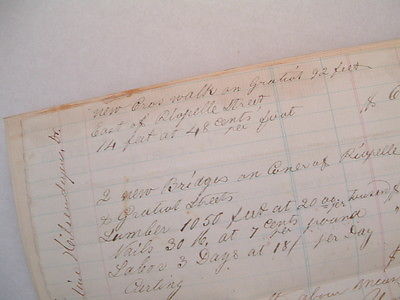 new Cros walk on Gratiot 92 feet
East of Riopelle Street
14 feet at 48 cents per foot
$ 6
2 new Bridges on Corner of Riopelle
& Gratiot Streets
Lumber 1050 feet at 20 per Tousand
Nails 30 lb, at 7 cents per pound
Labor 3 Days at 18/ per Day